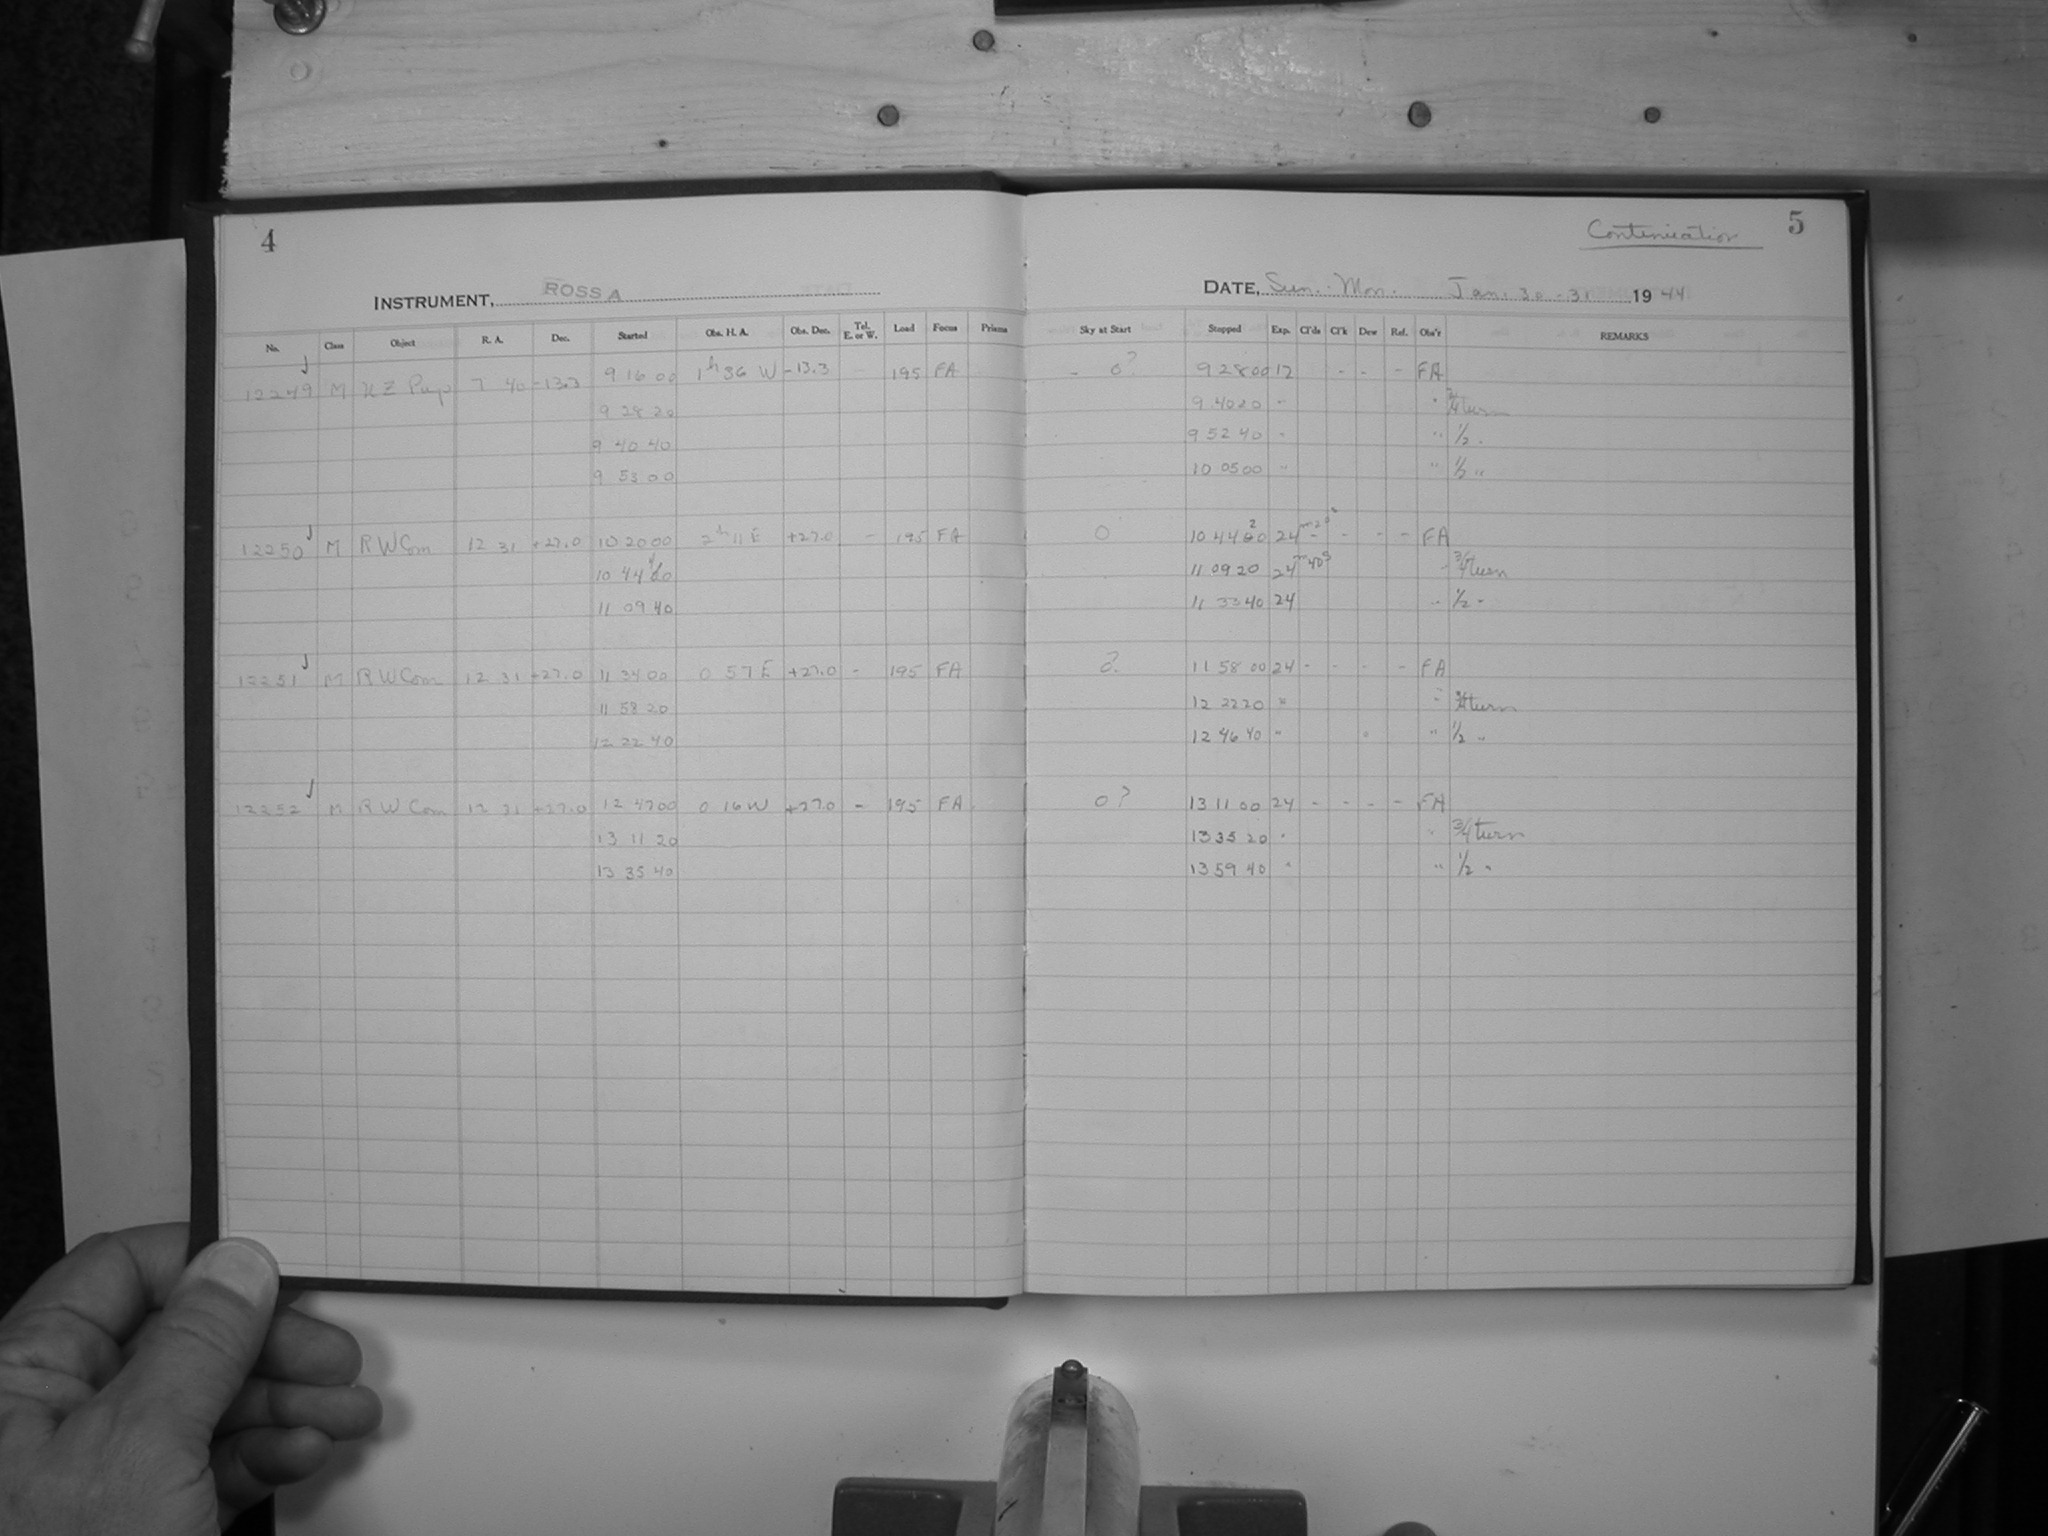 4
INSTRUMENT, ROSS A
No. Class Object R. A. Dec. Started Obs. H. A. Obs. Dec. Tel. E. or W. Load Focus Prisms
12249 M UZ Pup 7 40 -13.3 9 16 00 1h 36 W -13.3 - 195 FA
9 28 20
9 40 40
9 53 00
12250 M RW Com 12 31 +27.0 10 20 00 2h 11 E +27.0 - 195 FA
10 44 40
11 09 40
12251 M RW Com 12 31 +27.0 11 34 00 0 57 E +27.0 - 195 FA
11 58 20
12 22 40
12252 M RW Com 12 31 +27.0 12 47 00 0 16 W +27.0 - 195 FA
13 11 20
13 35 40
Continuation 5
DATE, Sun. - Mon. Jan. 30 - 31 1944
Sky at Start Stopped Exp. Cl'ds Cl'k Dew Ref. Obs'r REMARKS
- 0? 9 28 00 12 - - - FA
9 40 20 " " 3/4 turn
9 52 40 " " 1/2 "
10 05 00 " " "
0 10 44 20 24m 20s - - - - FA
11 09 20 24m 40s " 3/4 turn
11 33 40 24 " 1/2 "
0? 11 58 00 24 - - - - FA
12 22 20 " " 3/4 turn
12 46 40 " " 1/2 "
0? 13 11 00 24 - - - - FA
13 35 20 " " 3/4 turn
13 59 40 " " 1/2 "